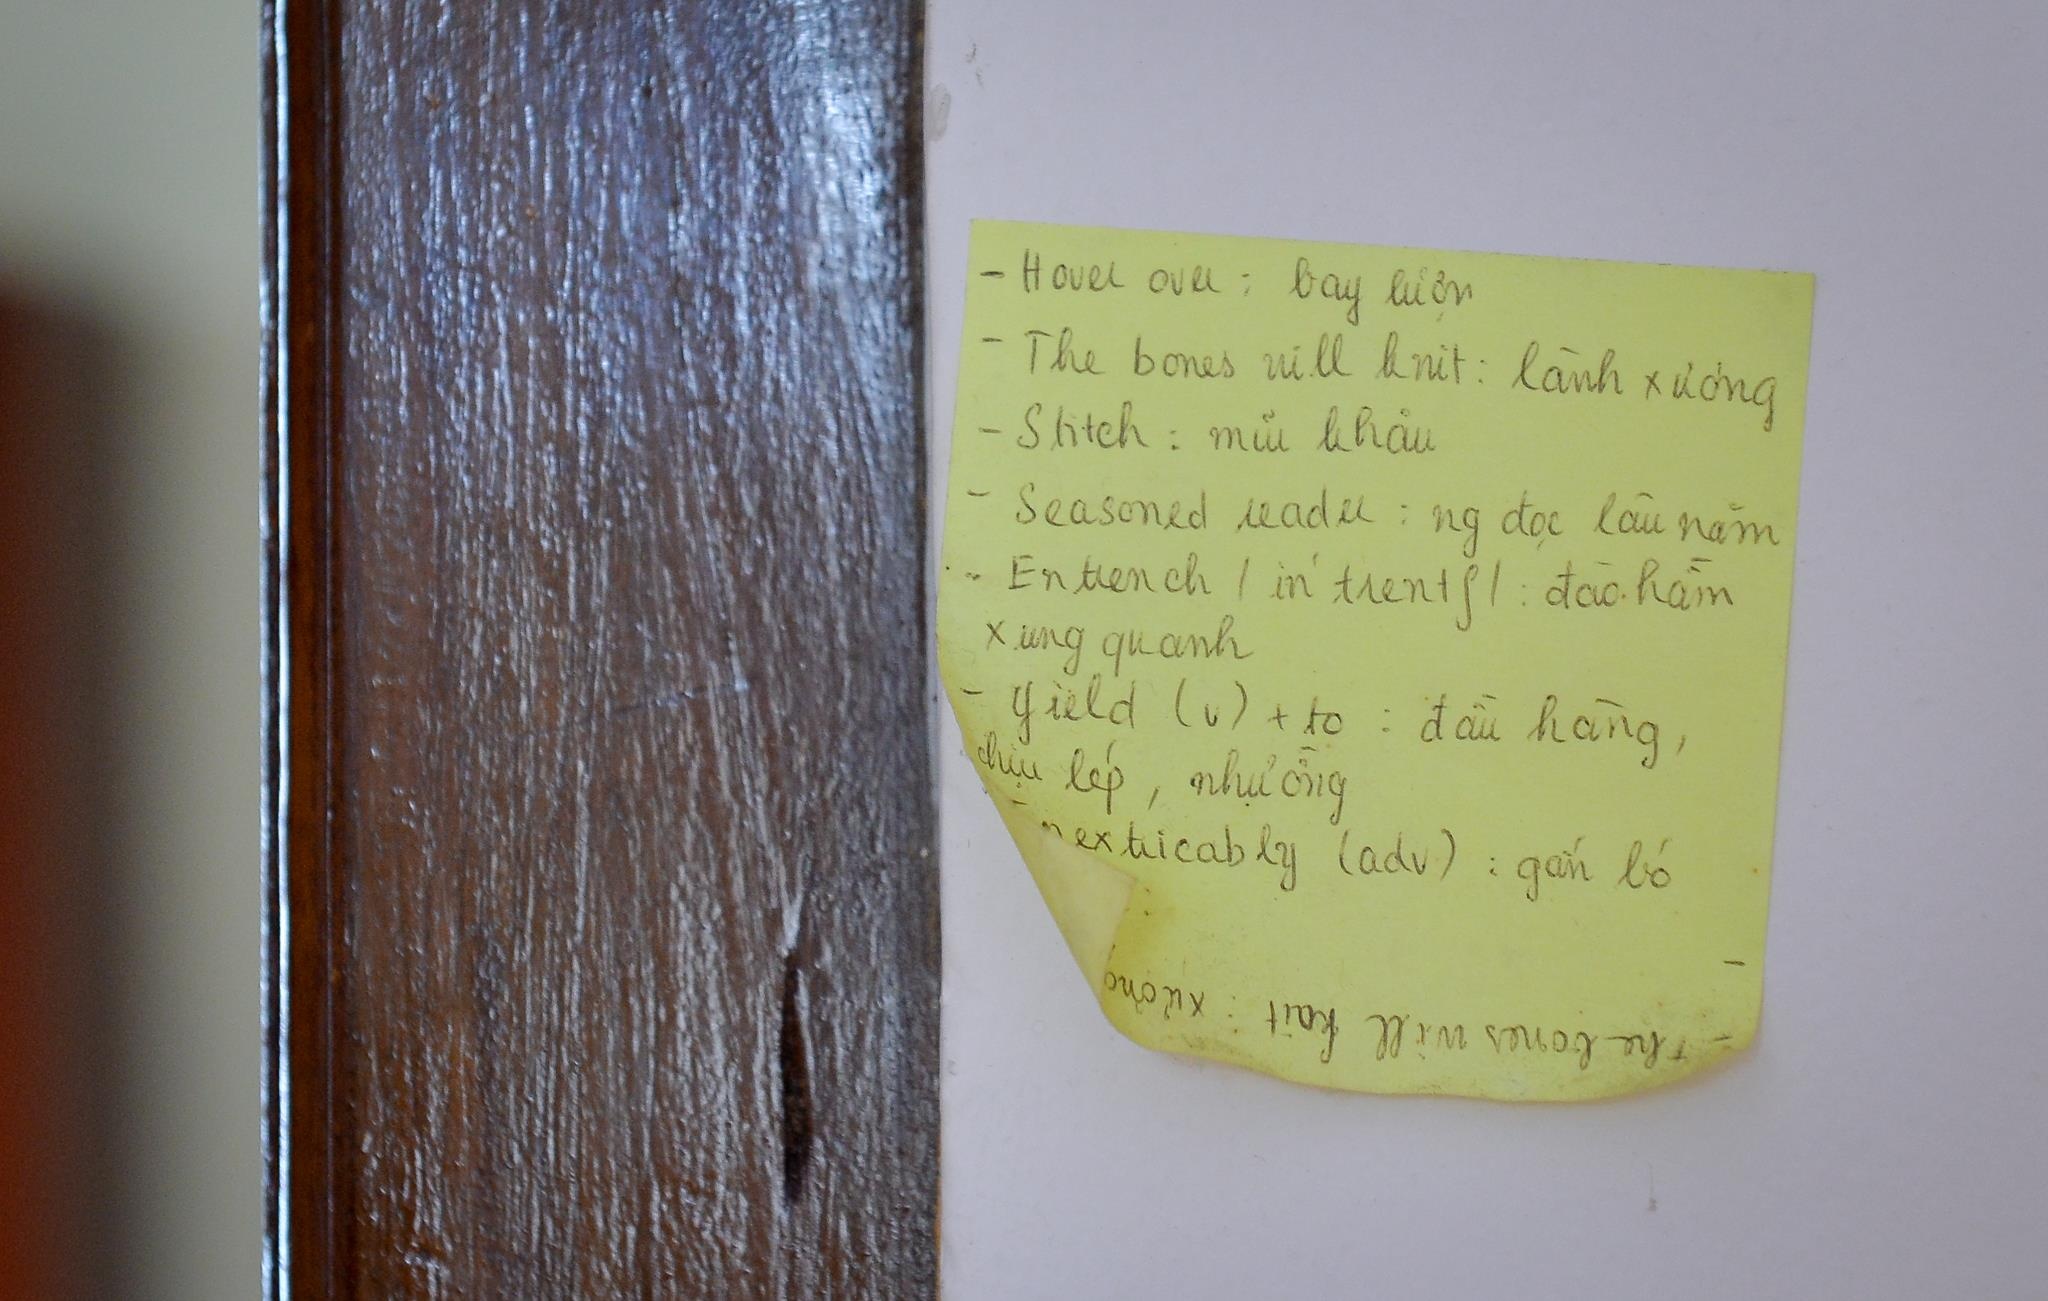 - Hover over : bay lượn
- The bones will knit : lành xương
- Stitch : mũi khâu
- Seasoned reader : ng đọc lâu năm
- Entrench / in'trentʃ / : đào hầm
xung quanh
- Yield (v) + to : đầu hàng,
chịu lép, nhường
nextricably (adv) : gắn bó
- The bones will knit : xương